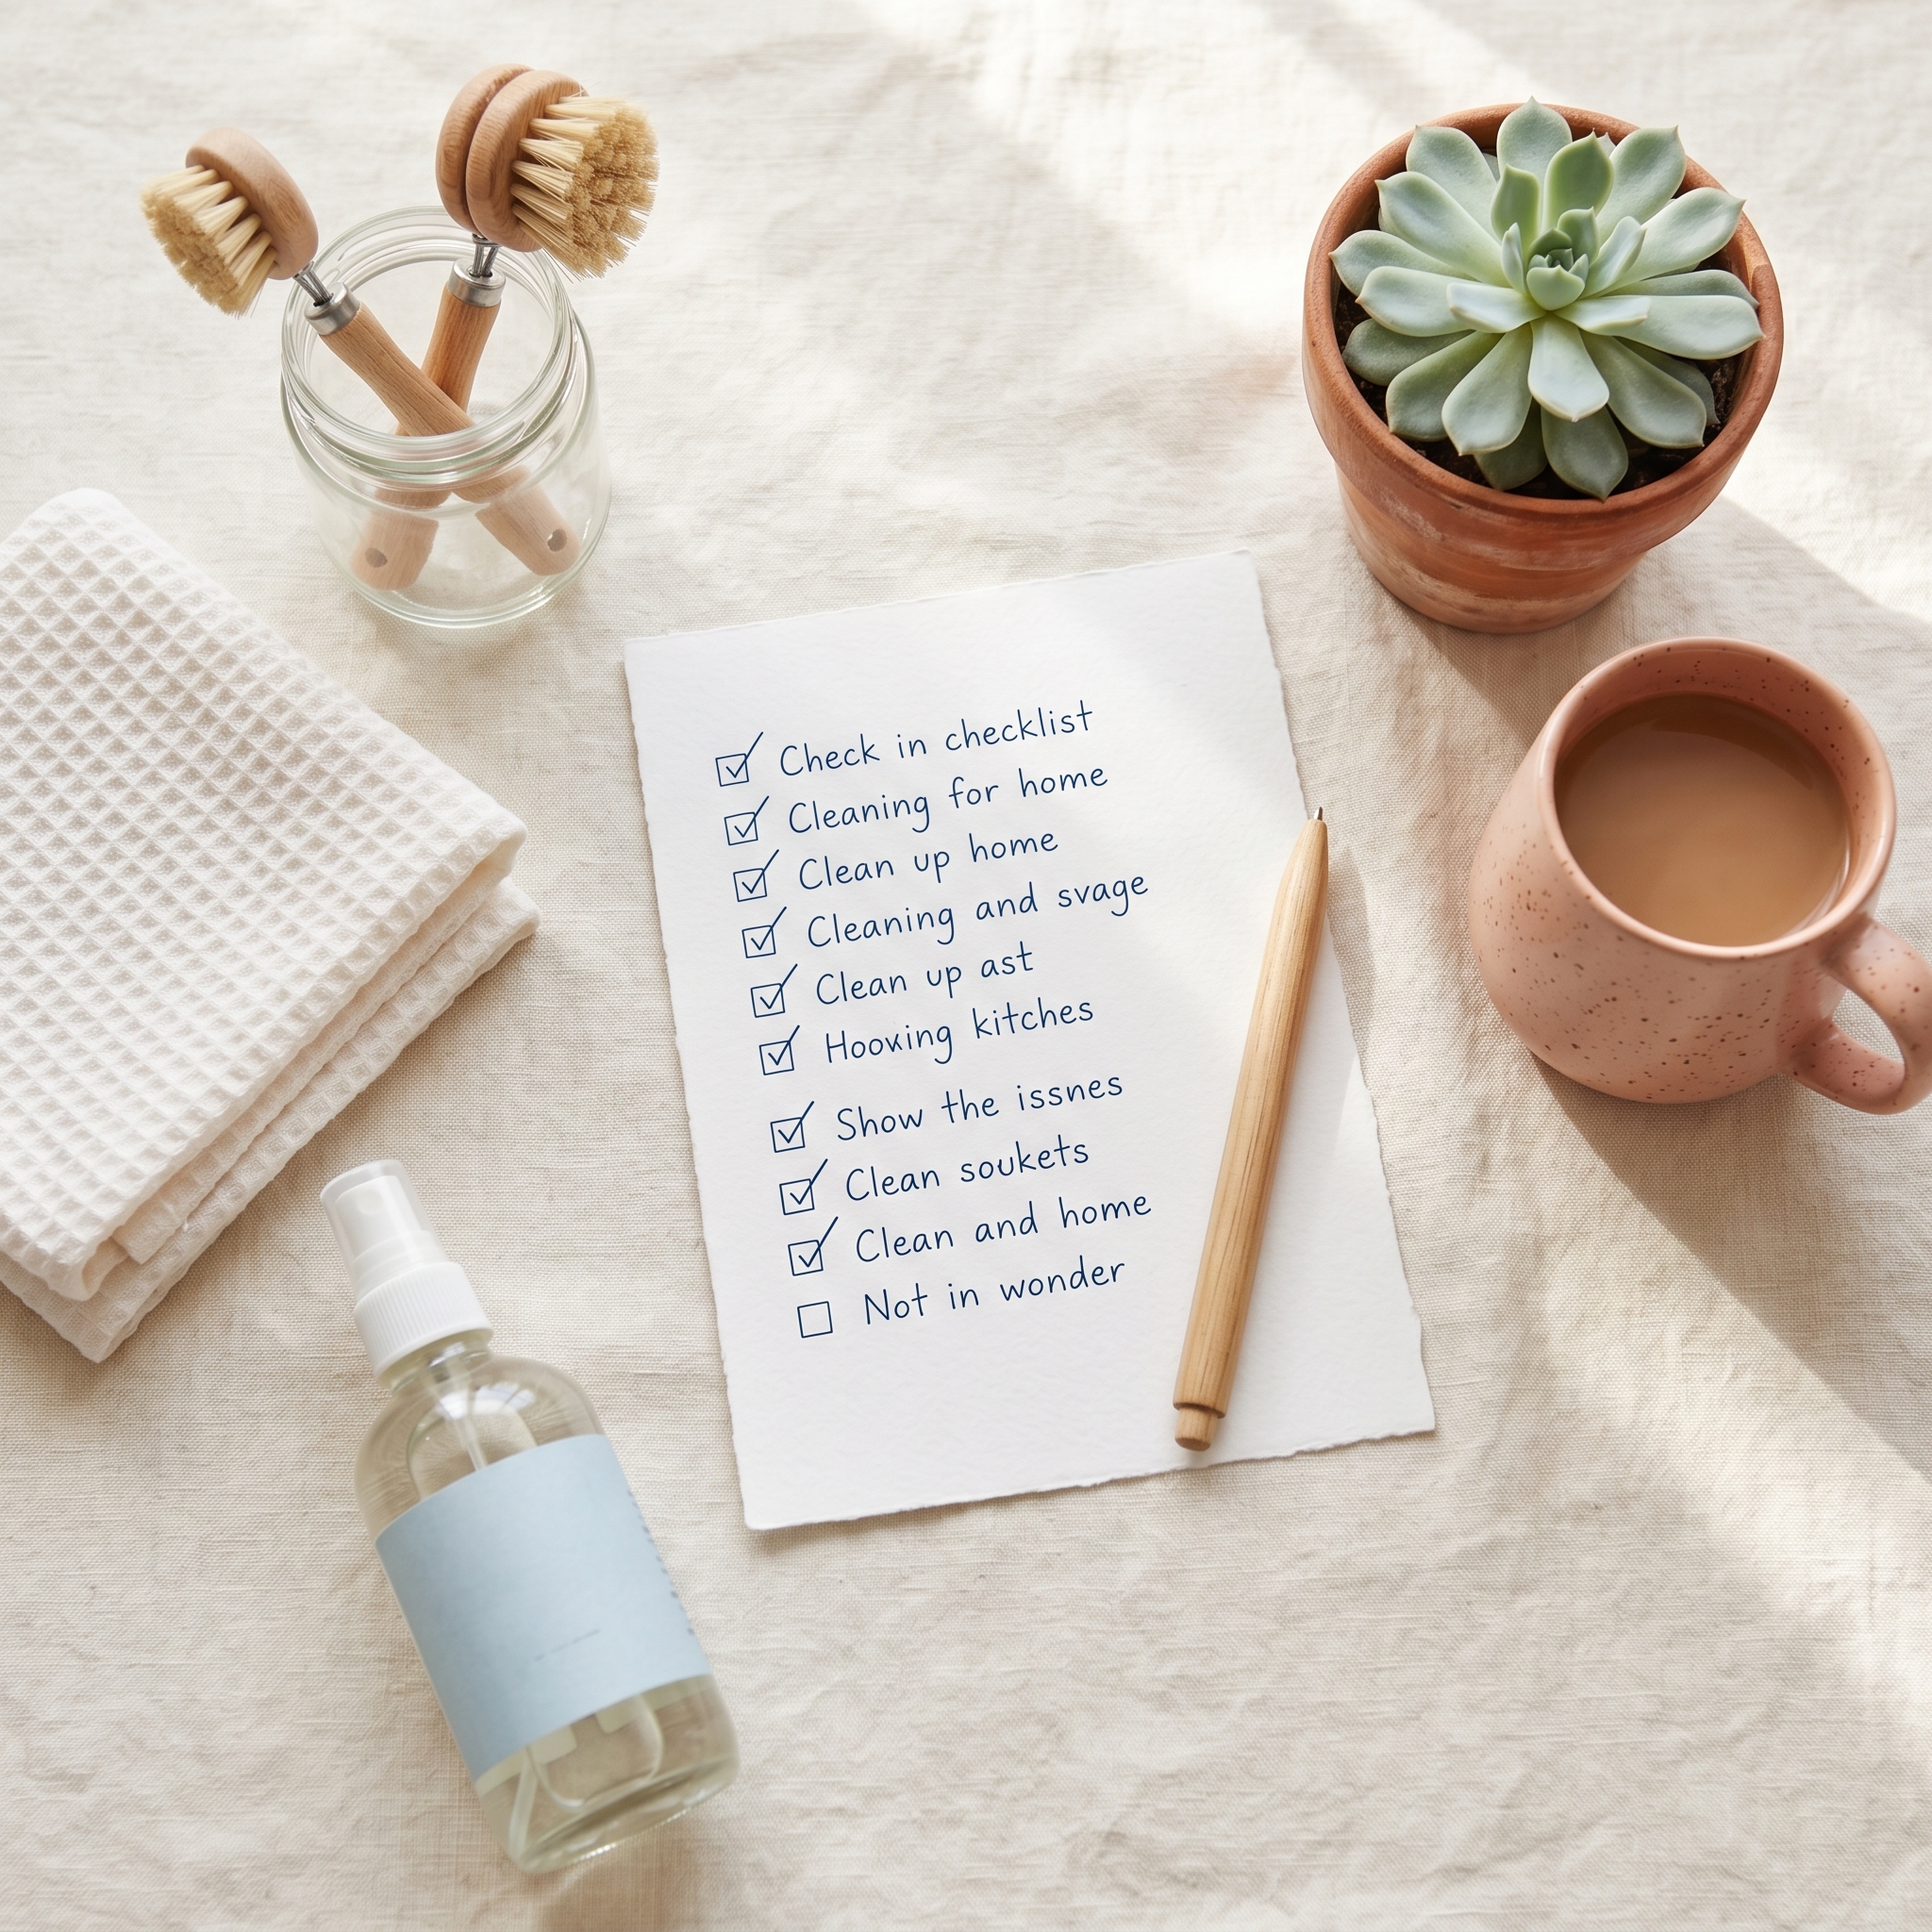 Check in checklist
Cleaning for home
Clean up home
Cleaning and svage
Clean up ast
Hooxing kitches
Show the issnes
Clean soukets
Clean and home
Not in wonder